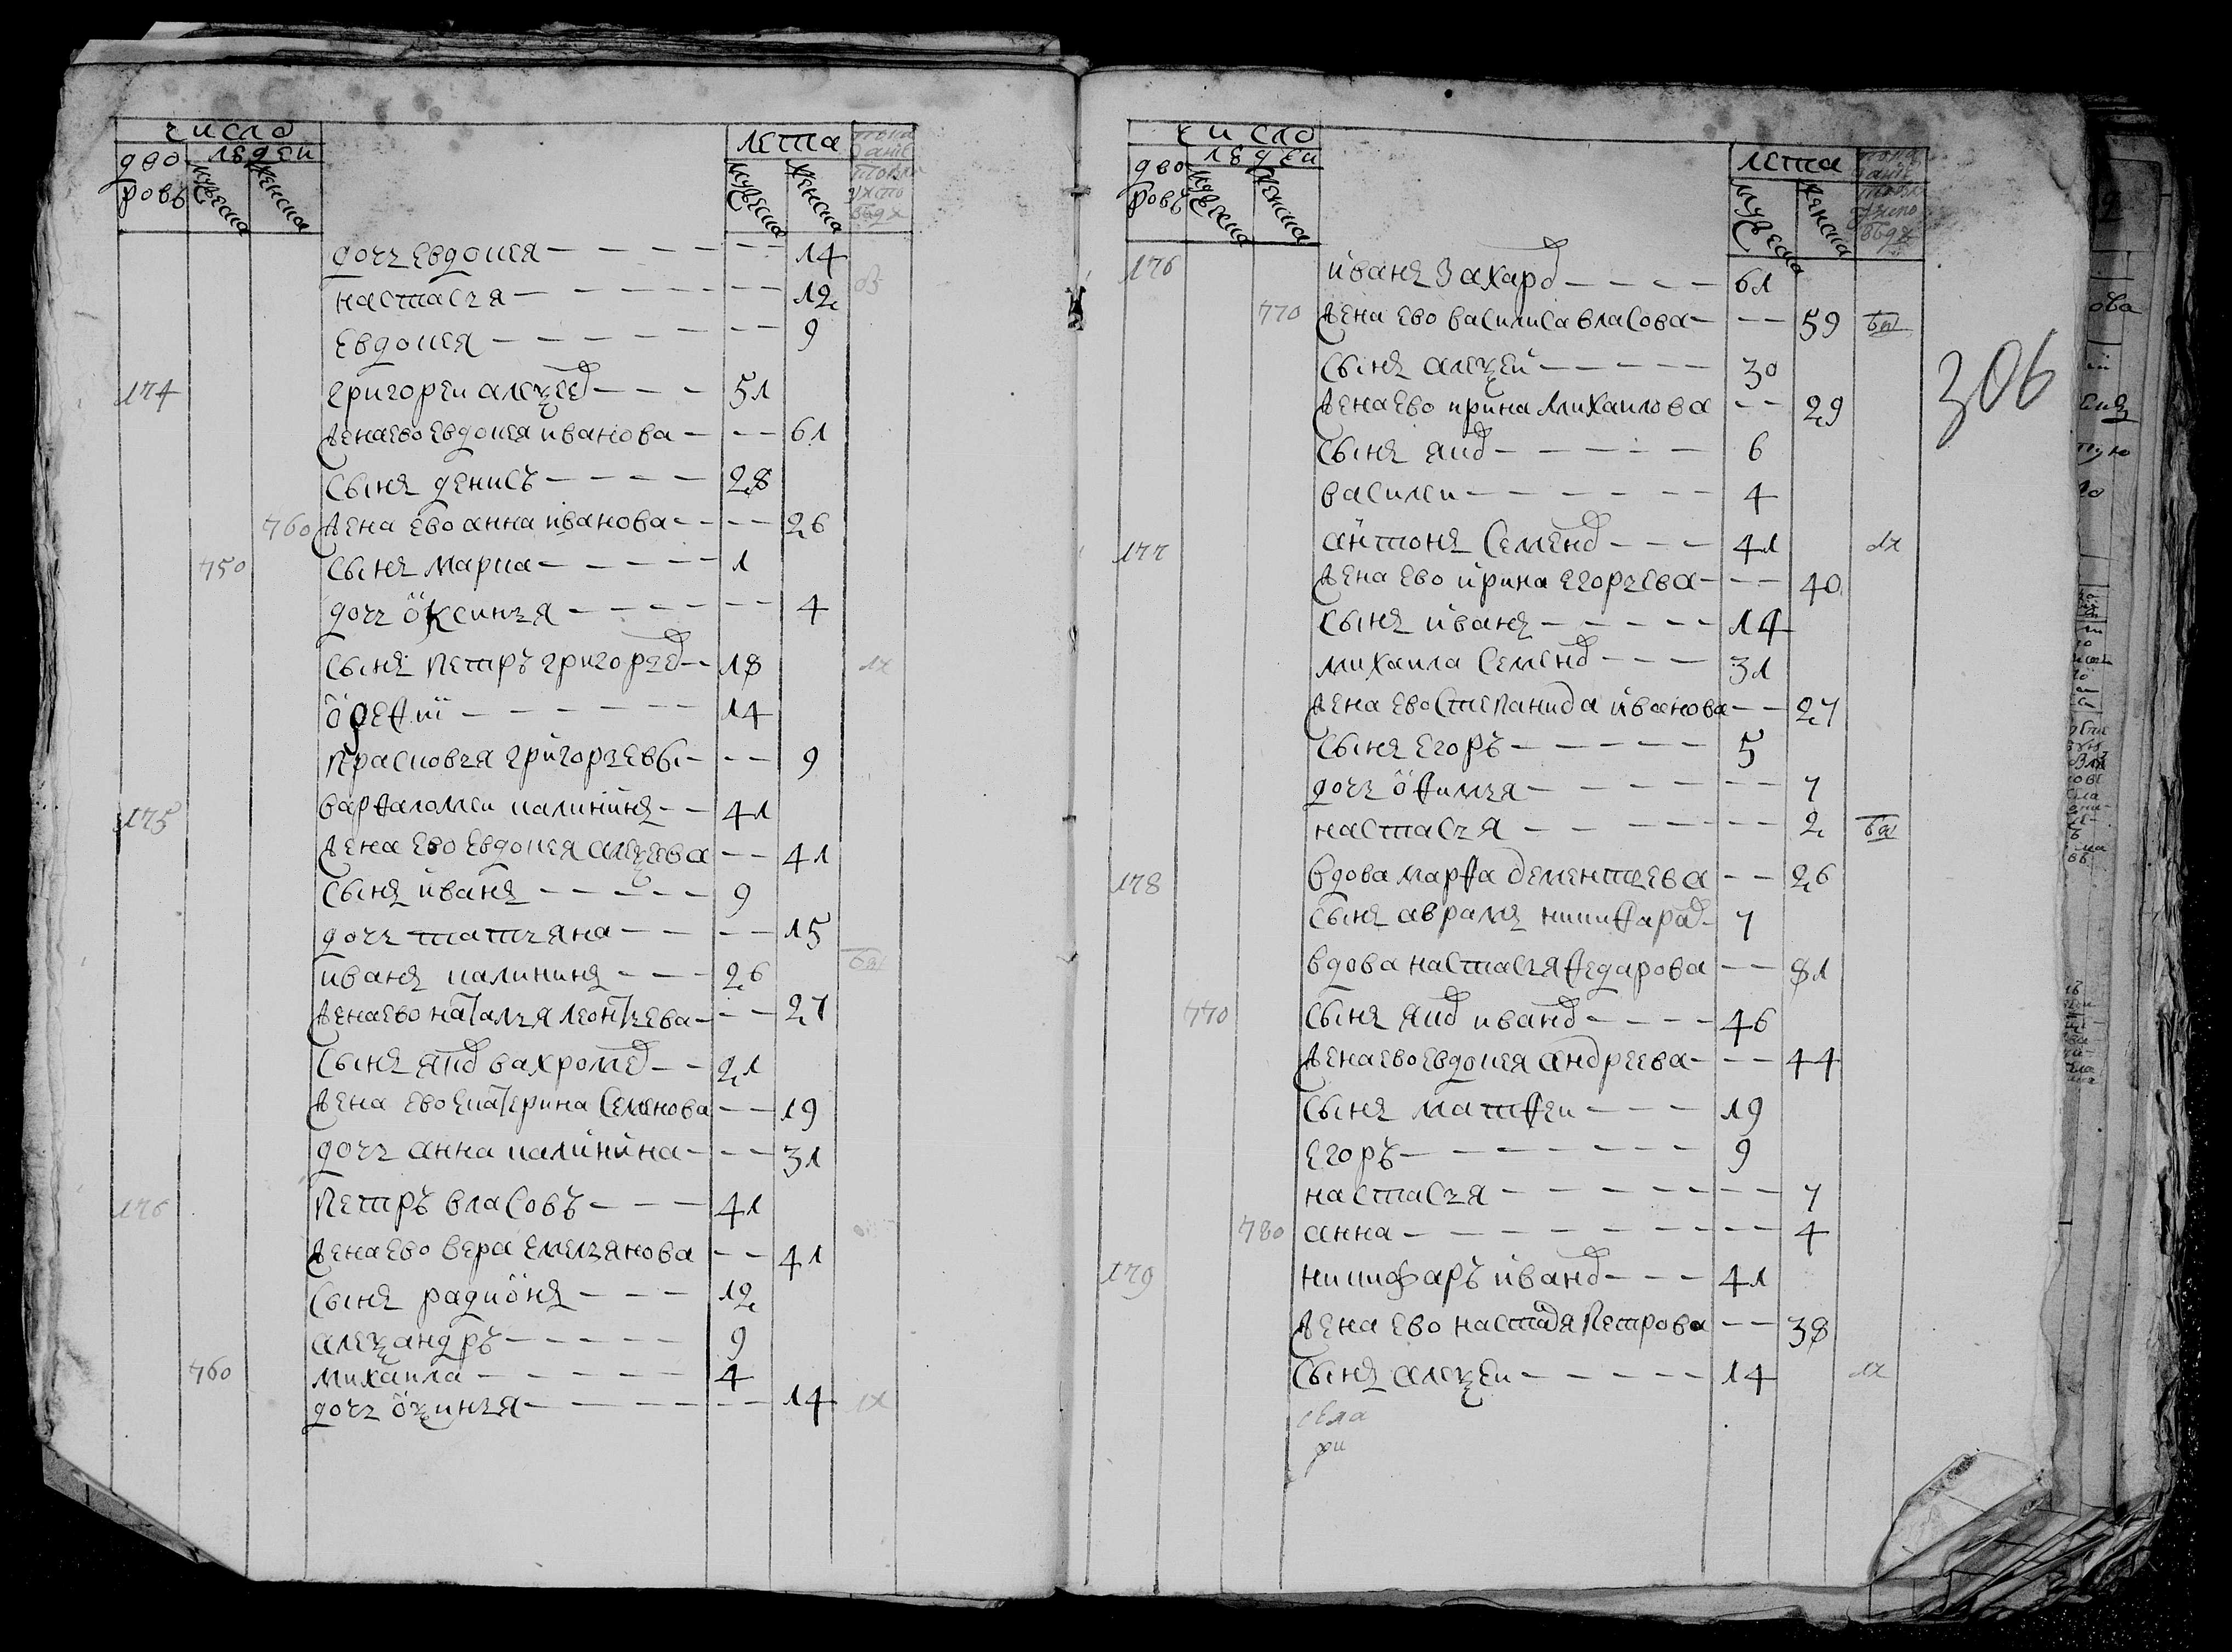 число
дво
ровъ
людей
мужеска
женска
лета
мужеска
женска
дочь Евдокея — 14
настасья — 12
Евдокея — 9
174 григореи алексеев — 51
жена ево Евдокея иванова — 61
сынъ денисъ — 28
760 жена ево анна иванова — 26
750 сынъ марка — 1
дочь оксинья — 4
сынъ петръ григорьев — 18
орефии — 14
прасковья григорьевы — 9
175 варфаломеи калининъ — 41
жена ево Евдокея алексеева — 41
сынъ иванъ — 9
дочь татьяна — 15
иванъ калининъ — 26
жена ево наталья леонтьева — 27
сынъ яков вахромев — 21
жена ево Екатерина семенова — 19
дочь анна калинина — 31
176 петръ власовъ — 41
жена ево вера Емельянова — 41
сынъ радионъ — 12
александръ — 9
760 михаила — 4
дочь оксинья — 14
число
дво
ровъ
людей
мужеска
женска
лета
мужеска
женска
306
176 иванъ захаров — 61
770 жена ево василиса власова — 59
сынъ алексей — 30
жена ево ирина михаилова — 29
сынъ яков — 6
василеи — 4
177 антонъ семенов — 41
жена ево ирина Егорьева — 40
сынъ иванъ — 14
михаила семенов — 31
жена ево степанида иванова — 27
сынъ Егоръ — 5
дочь офимья — 7
настасья — 2
178 вдова марфа дементьева — 26
сынъ аврамъ никифаров — 7
вдова настасья федарова — 81
770 сынъ яков иванов — 46
жена ево Евдокея андреева — 44
сынъ матфеи — 19
Егоръ — 9
настасья — 7
780 анна — 4
179 никифаръ иванов — 41
жена ево настасья петрова — 38
сынъ алексеи — 14
села